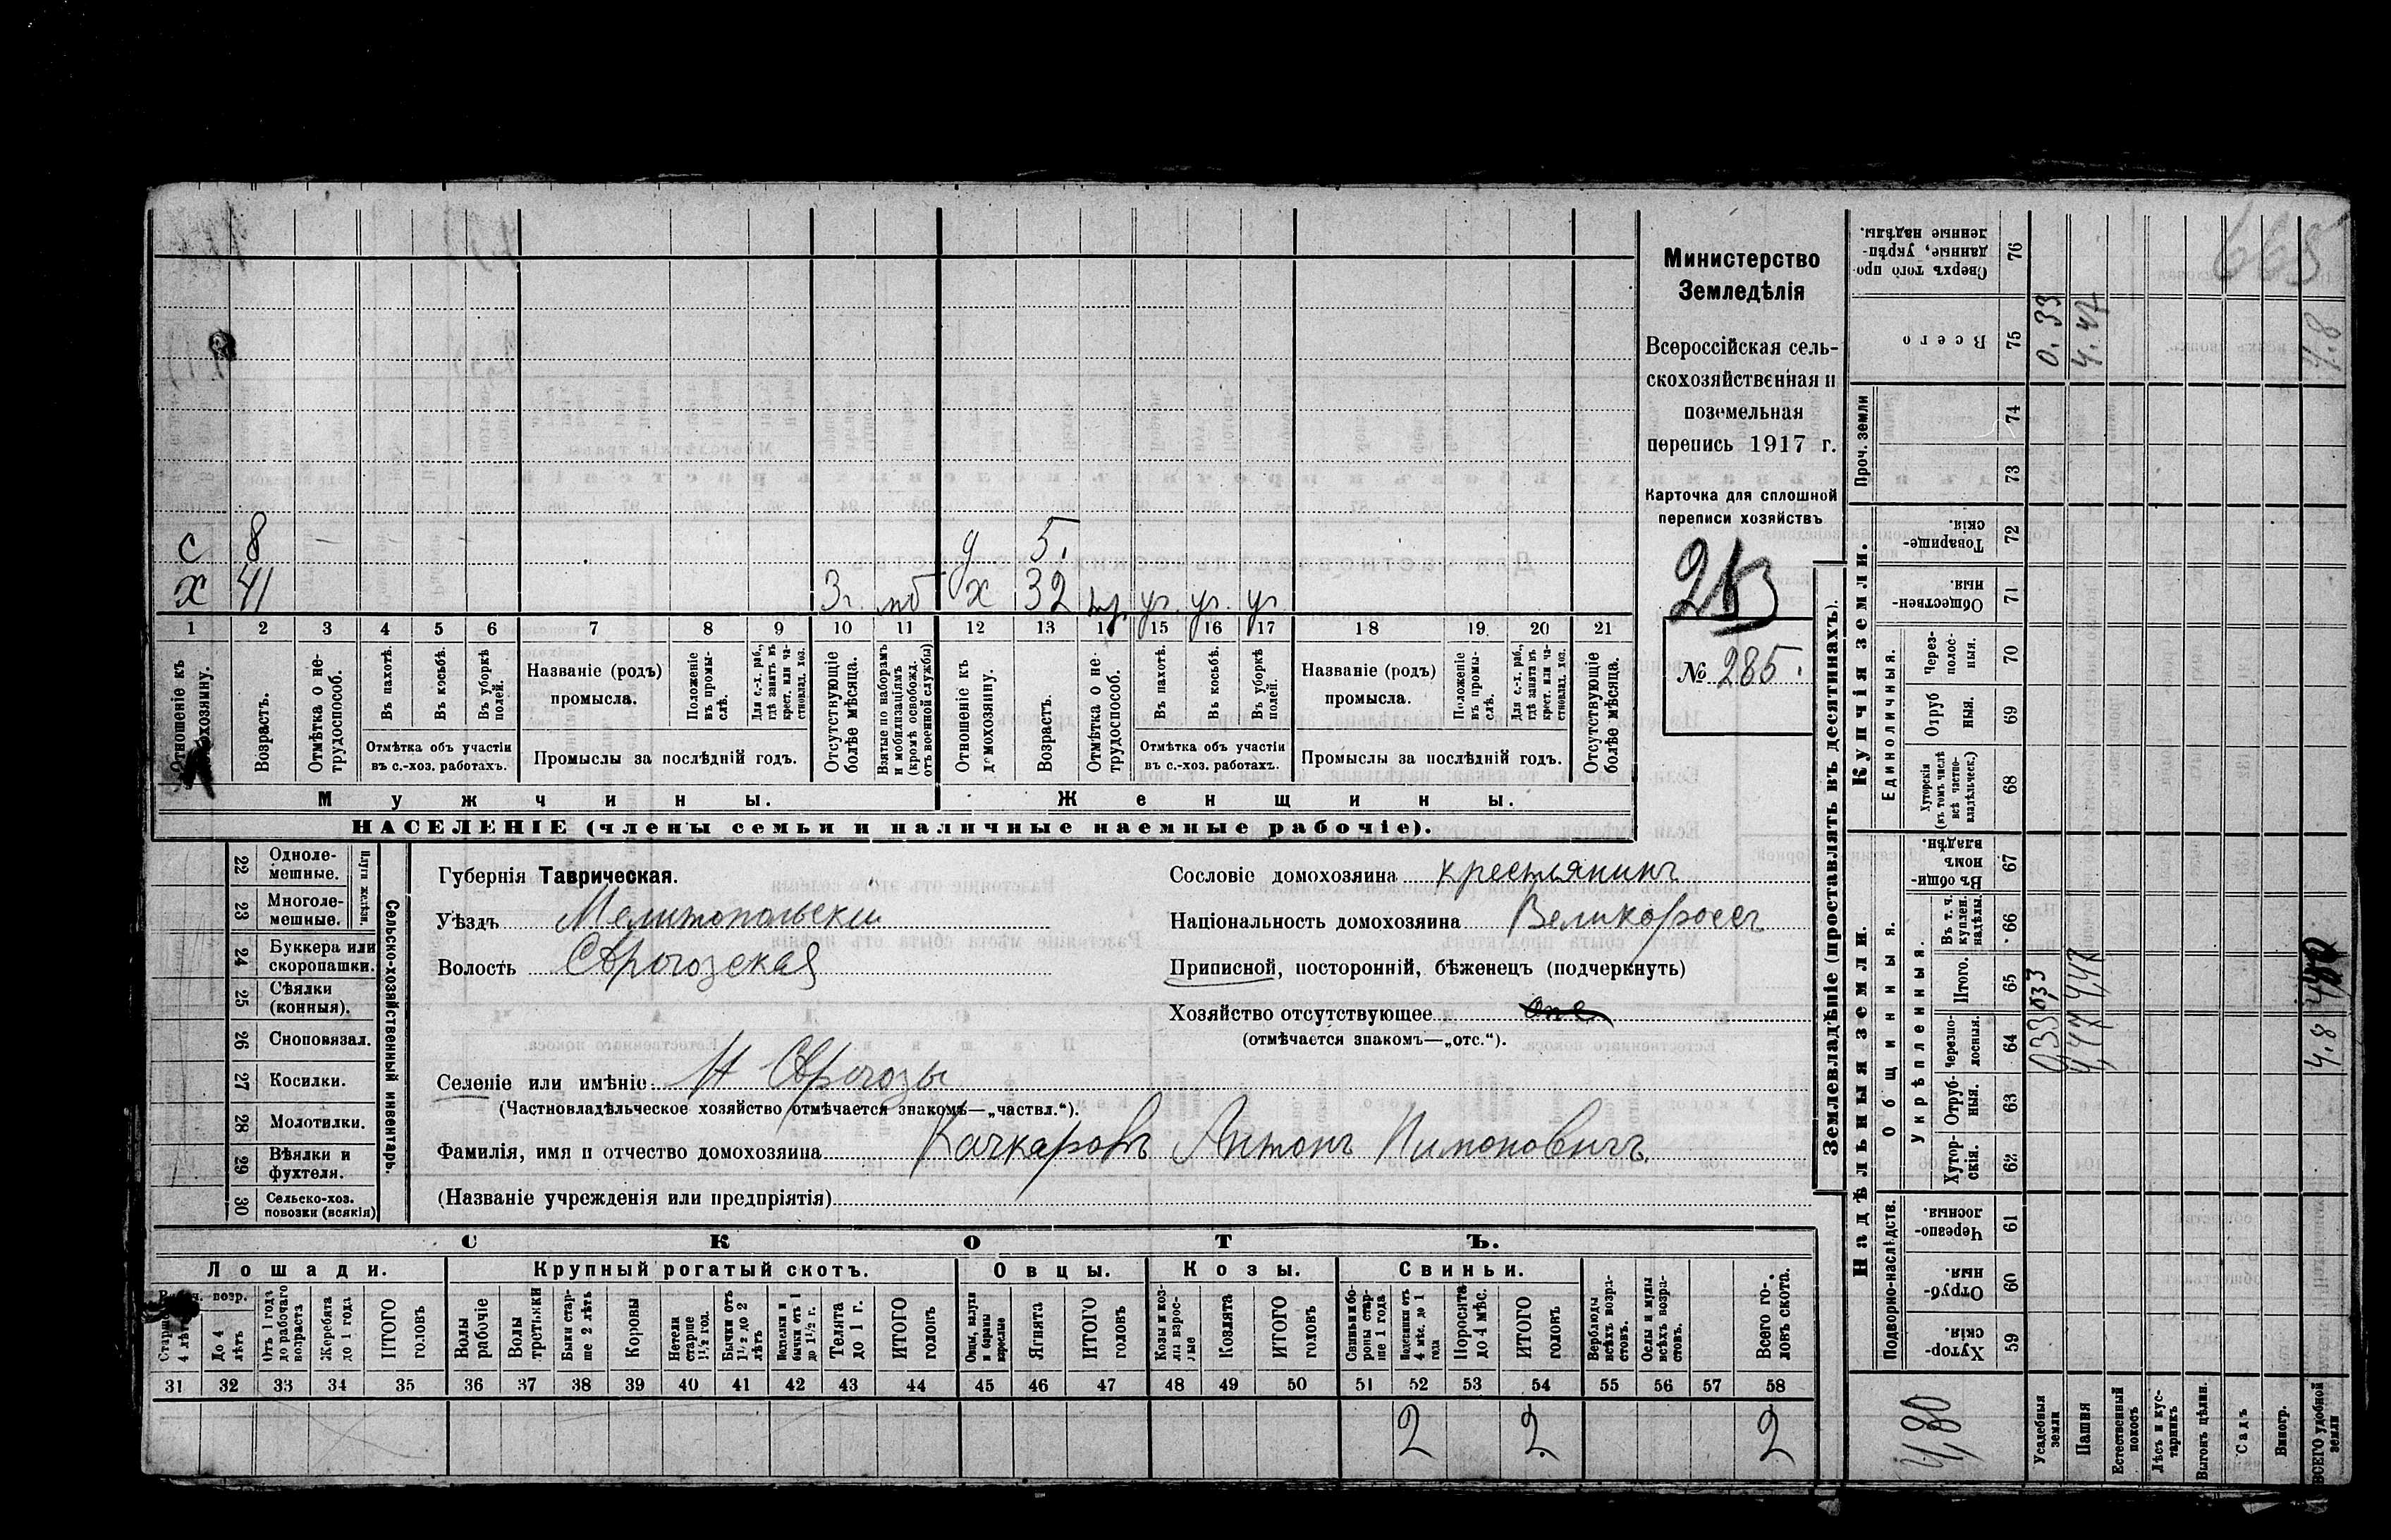 Министерство
Земледѣлія
Всероссійская сель-
скохозяйственная и
поземельная
перепись 1917 г.
Карточка для сплошной
переписи хозяйствъ
№ 285.
665
с 8 д 5.
х 41 3 г. мб х 32 уг. уг. уг
1 2 3 4 5 6 7 8 9 10 11 12 13 1 15 16 17 18 19. 20 21
Отношеніе къ
домохозяину.
Возрастъ.
Отмѣтка о не-
трудоспособ.
Въ пахотѣ.
Въ косьбѣ.
Въ уборкѣ
полей.
Отмѣтка объ участіи
въ с.-хоз. работахъ.
Названіе (родъ)
промысла.
Положеніе
въ промы-
слѣ.
Для с.-х. раб.,
гдѣ занятъ въ
крест. или ча-
стновлад. хоз.
Промыслы за послѣдній годъ.
Отсутствующіе
болѣе мѣсяца.
Взятые по наборамъ
и мобилизаціямъ
(кромѣ освобожд.
отъ военной службы)
Отношеніе къ
домохозяину.
Возрастъ.
Отмѣтка о не
трудоспособ.
Въ пахотѣ.
Въ косьбѣ.
Въ уборкѣ
полей.
Отмѣтка объ участіи
въ с.-хоз. работахъ.
Названіе (родъ)
промысла.
Положеніе
въ промы-
слѣ.
Для с.-х. раб.,
гдѣ занята въ
крест. или ча-
стновлад. хоз.
Промыслы за послѣдній годъ.
Отсутствующіе
болѣе мѣсяца.
Мужчины.
Женщины.
НАСЕЛЕНІЕ (члены семьи и наличные наемные рабочіе).
22 Одноле-
мешные.
23 Многоле-
мешные.
Плуги желѣзн.
24 Буккера или
скоропашки.
25 Сѣялки
(конныя).
26 Сноповязал.
27 Косилки.
28 Молотилки.
29 Вѣялки и
фухтели.
30 Сельско-хоз.
повозки (всякія)
Сельско-хозяйственный инвентарь.
Губернія Таврическая.
Уѣздъ Мелитопольскій
Волость
Селеніе или имѣніе:
(Частновладѣльческое хозяйство отмѣчается знакомъ—„частвл.“).
Фамилія, имя и отчество домохозяина Качкаровъ Антонъ Пимоновичъ.
(Названіе учрежденія или предпріятія)
Сословіе домохозяина крестьянинъ
Національность домохозяина Великороссъ
Приписной, посторонній, бѣженецъ (подчеркнуть)
Хозяйство отсутствующее
(отмѣчается знакомъ—„отс.“).
СКОТЪ.
Лошади. Крупный рогатый скотъ. Овцы. Козы. Свиньи.
До 4
лѣтъ
Отъ 1 года
до рабочаго
возраста
Жеребята
до 1 года
ИТОГО
головъ
Волы
рабочіе
Волы
третьяки
Быки стар-
ше 2 лѣтъ
Коровы
Нетели
старше
1½ год.
Бычки отъ
1½ до 2
лѣтъ
Телки и
бычки отъ 1
до 1½ г.
Телята
до 1 г.
ИТОГО
головъ
Овцы, валухи
и бараны
взрослые
Ягнята
ИТОГО
головъ
Козы и коз-
лы взрос-
лые
Козлята
ИТОГО
головъ
Свиньи и бо-
ровы стар-
ше 1 года
Подсвинки отъ
4 мѣс. до 1
года
Поросята
до 4 мѣс.
ИТОГО
головъ
Верблюды
всѣхъ возра-
стовъ.
Ослы и мулы
всѣхъ возра-
стовъ.
Всего го-
ловъ скота.
31 32 33 34 35 36 37 38 39 40 41 42 43 44 45 46 47 48 49 50 51 52 53 54 55 56 57 58
2 2 2
Землевладѣніе (проставлять въ десятинахъ).
Надѣльныя земли.
Купчія земли.
Проч. земли
Подворно-наслѣдств.
Общинныя.
Укрѣпленныя.
Единоличныя.
Хутор-
скія. 59
Отруб-
ныя. 60
Черезпо-
лосныя. 61
Хутор-
скія. 62
Отруб-
ныя. 63
Черезпо-
лосныя. 64
Итого. 65
Въ т. ч.
куплен.
надѣлы. 66
Въ общи-
номъ
владѣн. 67
Хуторскія
(въ томъ числѣ
всѣ частно-
владѣльческ.) 68
Отруб
ныя. 69
Через-
полос-
ныя. 70
Обществен-
ныя. 71
Товарище-
скія. 72
73
74
Всего 75
Сверхъ того про-
данные, укрѣп-
ленные надѣлы. 76
4,80
Усадебныя
земли
0,33 0,33 0.33
Пашня
4,47 4,47 4.47
Естественный
покосъ
Лѣсъ и кус-
тарникъ
Выгонъ цѣлин.
Садъ
Виногр.
ВСЕГО удобной
земли
4,8 4.8